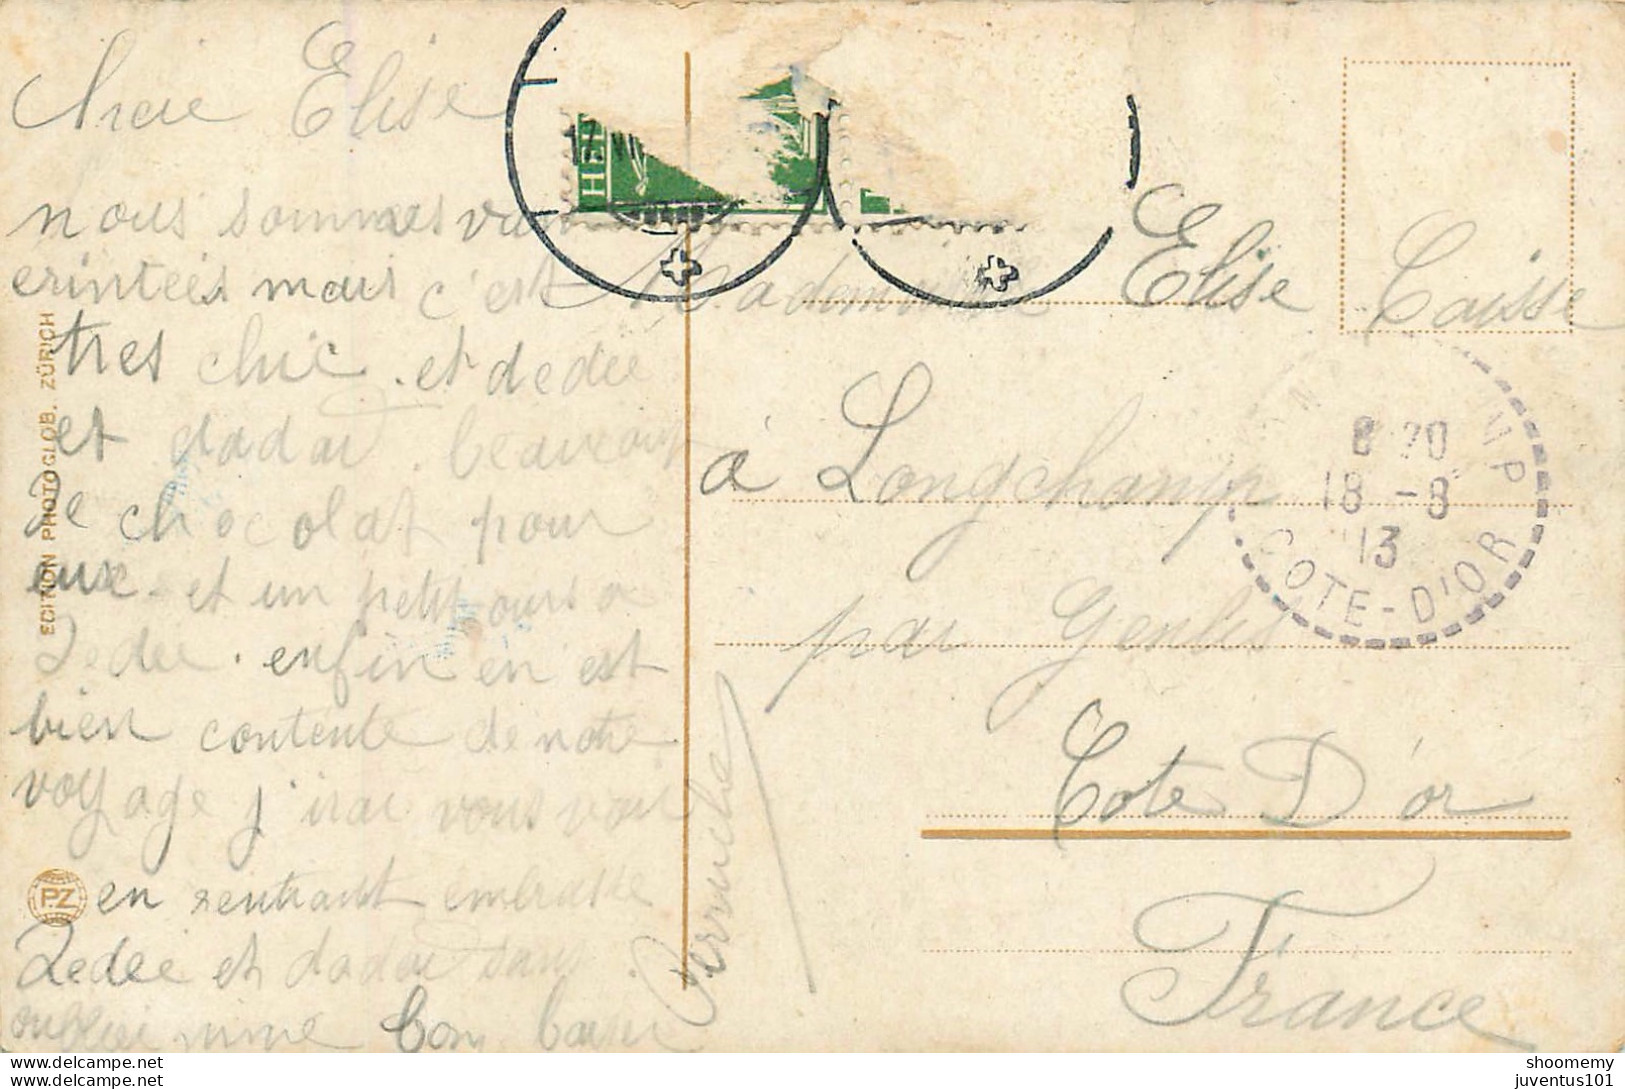 Chere Elise
nous sommes
erintées mais c'est
tres chic. et dedée
et dadai. beaucoup
de chocolat pour
eux. et un petit ours a
Dedee. enfin en est
bien contente de notre
voyage j'irai vous voir
en rentrant embrasse
Dedee et dadai sans
oublier mimi bon baiser
Perruche
Mademoiselle Elise Caisse
à Longchamp
par Genlis
Cote D'or
France
HEL
17 VII
8 20
18 -8
13
COTE-D'OR
EDITION PHOTOGLOB. ZÜRICH
PZ
shoomemy
juventus101